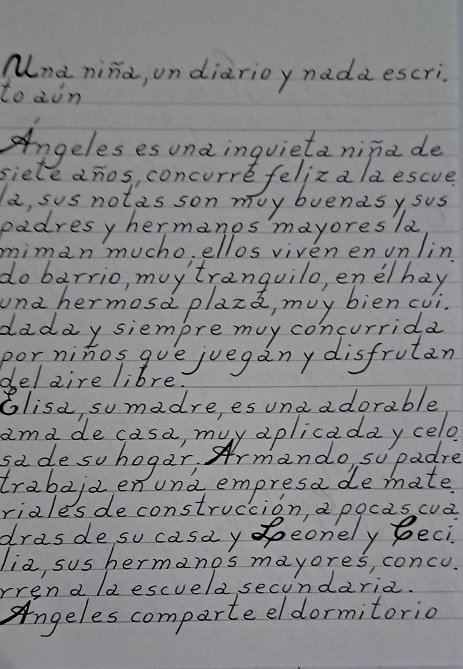 Una niña, un diario y nada escri.
to aún
Ángeles es una inquieta niña de
siete años, concurre feliz a la escue.
la, sus notas son muy buenas y sus
padres y hermanos mayores la
miman mucho, ellos viven en un lin.
do barrio, muy tranquilo, en él hay
una hermosa plaza, muy bien cui.
dada y siempre muy concurrida
por niños que juegan y disfrutan
del aire libre.
Elisa, su madre, es una adorable
ama de casa, muy aplicada y celo.
sa de su hogar. Armando, su padre
trabaja en una empresa de mate.
riales de construcción, a pocas cua
dras de su casa y Leonel y Ceci.
lia, sus hermanos mayores, concu.
rren a la escuela secundaria.
Ángeles comparte el dormitorio